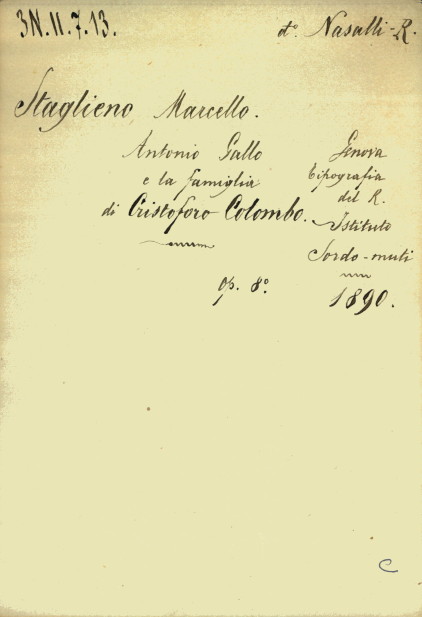 3N.II.7.13.
dº. Nasalli-R.
Staglieno Marcello.
Antonio Gallo
e la famiglia
di Cristoforo Colombo.
Genova
tipografia
del R.
Istituto
Sordo-muti
op. 8º.
1890.
C